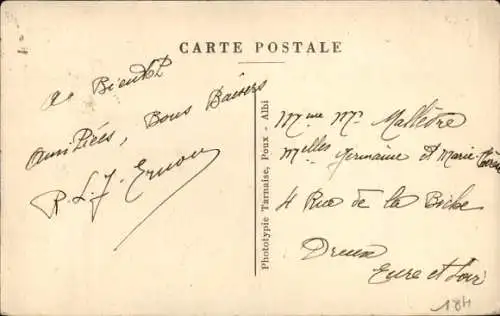 CARTE POSTALE
a Bientôt
Amitiées, Bons Baisers
R. L. J. Ernou
Phototypie Tarnaise, Poux - Albi
Mme Mr Mallèvre
Melles Germaine et Marie
4 Rue de la Biche
Dreux
Eure et Loir
184